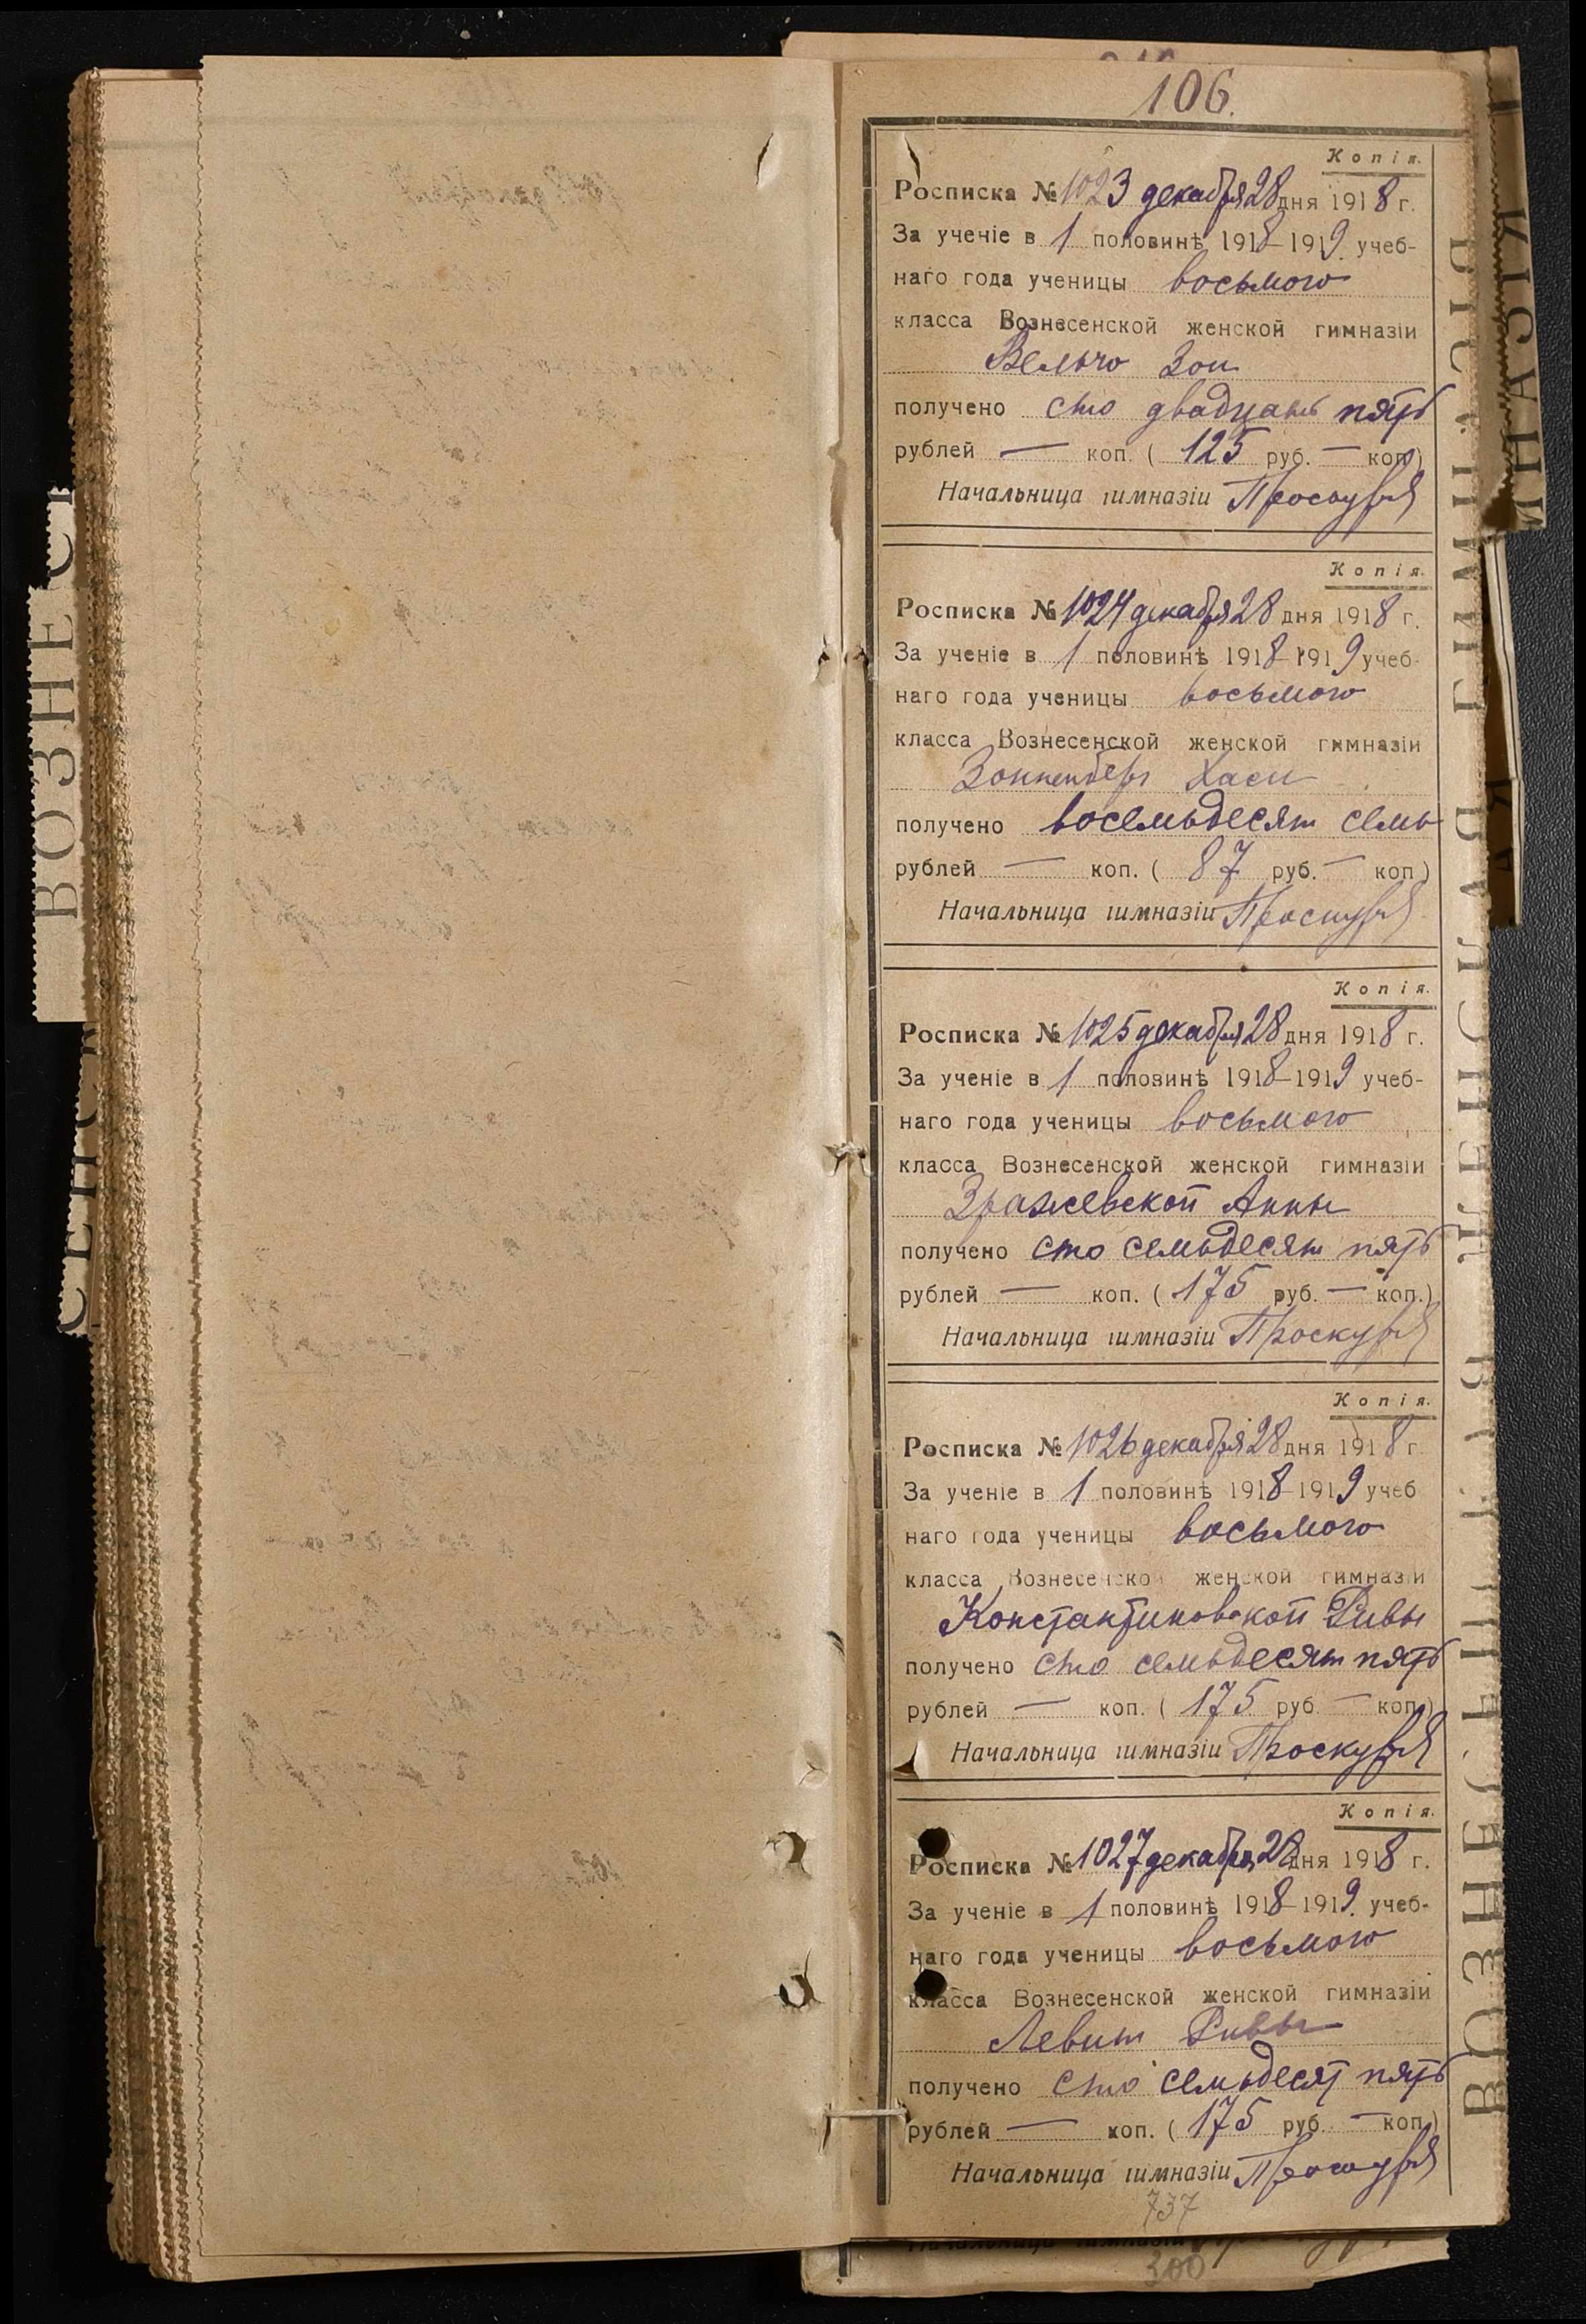 106.
Копія.
Росписка № 1023 декабря 28 дня 1918 г.
За ученіе в 1 половинѣ 1918-1919 учеб-
наго года ученицы восьмого
класса Вознесенской женской гимназіи
Вельчо Зои
получено сто двадцать пять
рублей — коп. ( 125 руб. — коп)
Начальница гимназіи
Копія.
Росписка № 1024 декабря 28 дня 1918 г.
За ученіе в 1 половинѣ 1918-1919 учеб-
наго года ученицы восьмого
класса Вознесенской женской гимназіи
Зонненберг Хаси
получено восемьдесят семь
рублей — коп. ( 87 руб. — коп)
Начальница гимназіи
Копія.
Росписка № 1025 декабря 28 дня 1918 г.
За ученіе в 1 половинѣ 1918-1919 учеб-
наго года ученицы восьмого
класса Вознесенской женской гимназіи
Зражевской Анны
получено сто семьдесят пять
рублей — коп. ( 175 руб. — коп.)
Начальница гимназіи
Копія.
Росписка № 1026 декабря 28 дня 1918 г
За ученіе в 1 половинѣ 1918-1919 учеб
наго года ученицы восьмого
класса Вознесенской женской гимназіи
Константиновской Ривы
получено сто семьдесят пять
рублей — коп. ( 175 руб — коп.)
Начальница гимназіи
Копія.
Росписка № 1027 декабря 28 дня 1918 г.
За ученіе в 1 половинѣ 1918-1919 учеб-
наго года ученицы восьмого
класса Вознесенской женской гимназіи
Левит Ривы
получено сто семьдесят пять
рублей — коп. ( 175 руб. — коп)
Начальница гимназіи
737
300
ВОЗНЕС